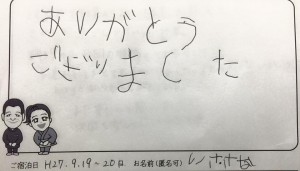 ありがとう
ございました
ご宿泊日 H27.9.19~20日 お名前(匿名可)